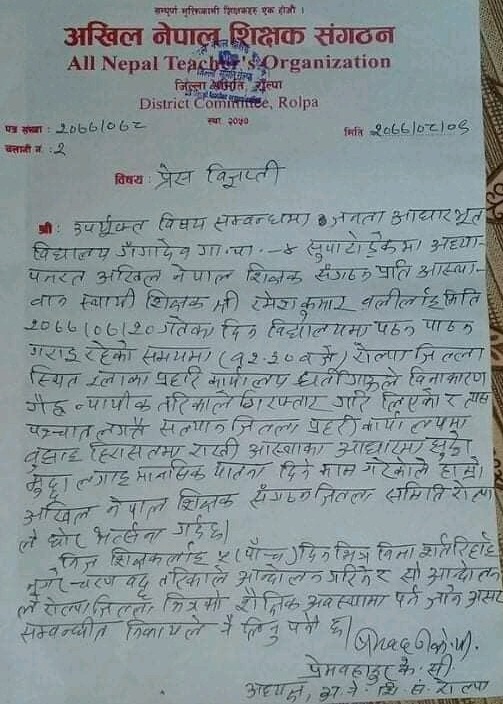 सम्पूर्ण मुक्तिकामी शिक्षकहरु एक होऔं ।
अखिल नेपाल शिक्षक संगठन
All Nepal Teacher's Organization
जिल्ला समिति, रोल्पा
District Committee, Rolpa
स्था २०५०
पत्र संख्या : २०६६/०६८
मिति २०६६/०८/०९
चलानी नं : २
विषय : प्रेस विज्ञप्ती
श्री: उपर्युक्त विषय सम्बन्धमा जनता आधारभूत
विद्यालय गंगादेव गा.वि. -४ सुपाटोड्रेकमा अध्या-
पनरत अखिल नेपाल शिक्षक संगठन प्रति आस्था-
वान स्थायी शिक्षक श्री रमेश कुमार वलीलाई मिति
२०६६/०६/२० गतेका दिन विद्यालयमा पठन पाठन
गराइ रहेको समयमा (१२:३० बजे) रोल्पा जिल्ला
स्थित इलाका प्रहरि कार्यालय घर्तीगाउँले विनाकारण
गैह्र न्यायीक तरिकाले गिरफ्तार गरि लिएको र त्यस
पश्चात लगत्तै सल्यान जिल्ला प्रहरी कार्यालयमा
बुझाइ हिरासतमा राखी आस्थाका आधारमा झुट्टो
मुद्दा लगाइ मानसिक यातना दिने काम गरेकोले हाम्रो
अखिल नेपाल शिक्षक संगठन जिल्ला समिति रोल्पा
ले घोर भर्त्सना गर्दछ।
निज शिक्षकलाई ५ (पाँच) दिन भित्र विना शर्त रिहाई
नगरे चरण वद्ध तरिकाले आन्दोलन गरिने र सो आन्दोल
ले रोल्पा जिल्ला भित्रको शैक्षिक अवस्थामा पर्न जाने असर
सम्बन्धीत निकायले नै लिनु पर्ने छ।
प्रेमबहादुर के. सी.
अध्यक्ष, अ. ने. शि. सं. रोल्पा